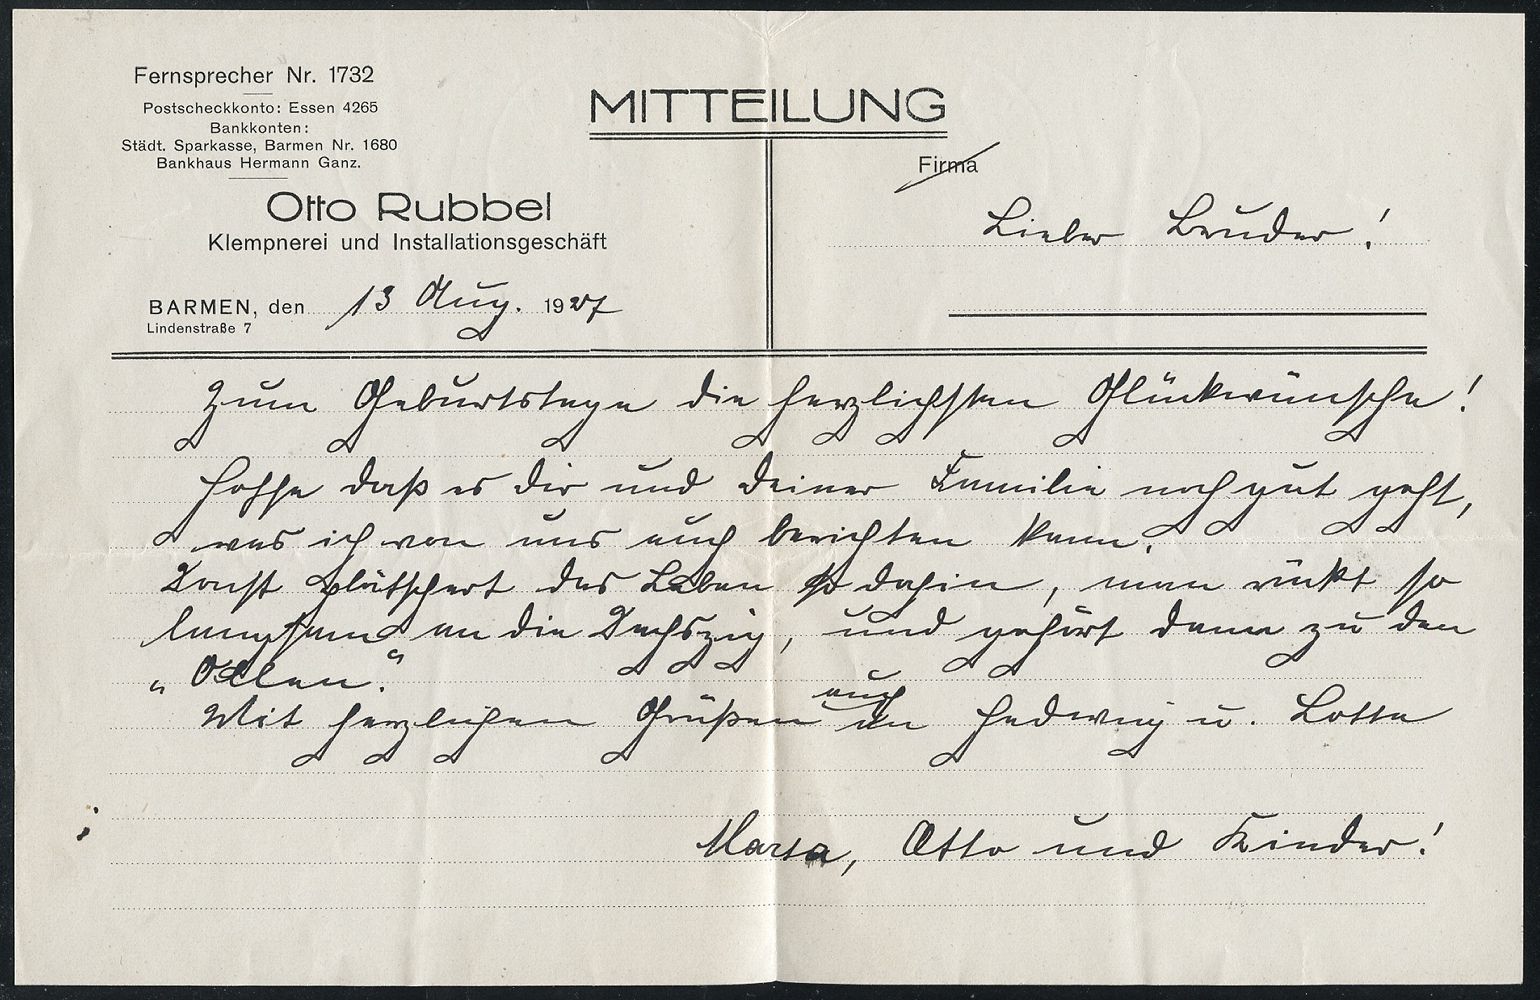 Fernsprecher Nr. 1732
Postscheckkonto: Essen 4265
Bankkonten:
Städt. Sparkasse, Barmen Nr. 1680
Bankhaus Hermann Ganz.
Otto Rubbel
Klempnerei und Installationsgeschäft
BARMEN, den 13 Aug. 1927
Lindenstraße 7
MITTEILUNG
Firma
Lieber Bruder!
Zum Geburtstage die herzlichsten Glückwünsche!
Hoffe daß es dir und deiner Familie noch gut geht,
was ich von uns auch berichten kann.
Sonst plätschert das Leben so dahin, man rückt so
langsam an die Sechszig, und gehört dann zu den
„Ollen."
Mit herzlichen Grüßen auch an Hedwig u. Lotte
Marta, Otto und Kinder!